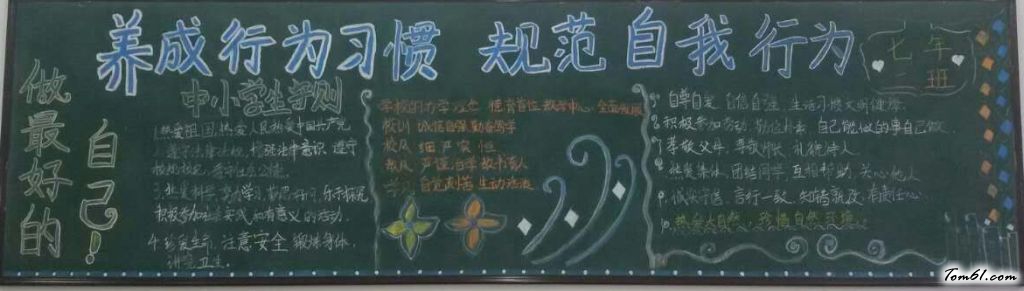 养成行为习惯 规范自我行为
七年
二班
做最好的
自己!
中小学生守则
1.热爱祖国,热爱人民,热爱中国共产党
2.遵守法律法规,增强法律意识 遵守
校规校纪,遵守社会公德。
3.热爱科学,努力学习,勤思好问,乐于探究
积极参加社会实践和有意义的活动。
4.珍爱生命,注意安全 锻炼身体,
讲究卫生。
学校的办学特色 德育首位 教学中心 全面发展
校训 诚信自强 勤奋笃学
校风 细 严 实 恒
教风 严谨治学 教书育人
学风 自觉 生动活泼
5. 自尊自爱 自信自强 生活习惯文明健康
6. 积极参加劳动 勤俭朴素 自己能做的事自己做
7. 孝敬父母 尊敬师长 礼貌待人
8. 热爱集体 团结同学 互相帮助 关心他人
9. 诚实守信 言行一致 知错就改 有责任心
10. 热爱大自然 珍惜自然环境
Tom61.com